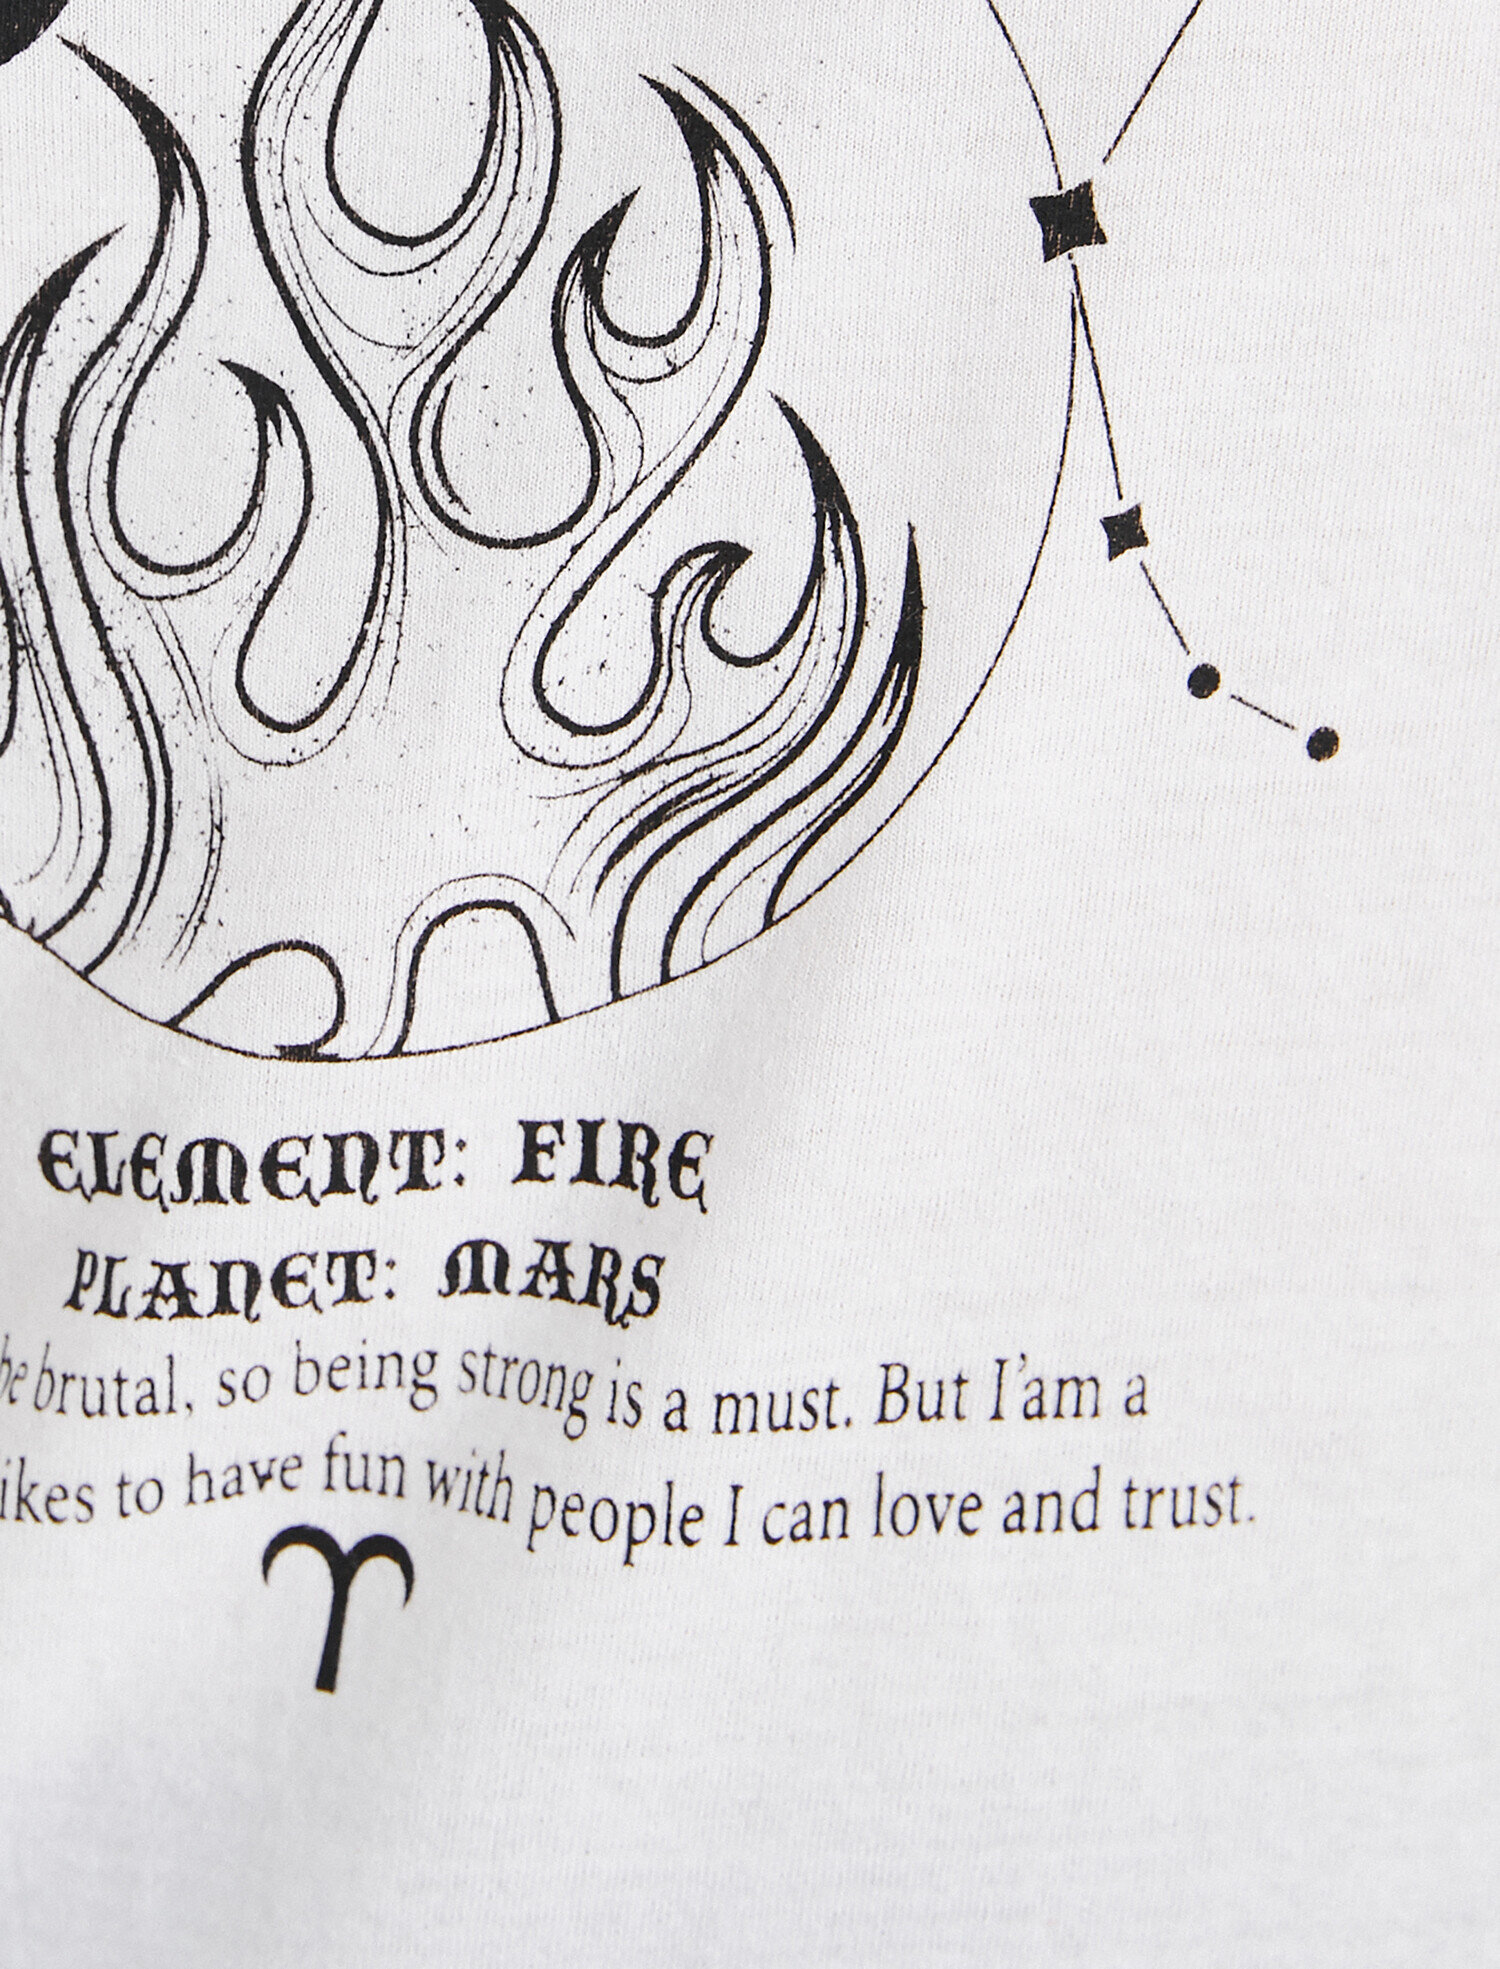 ELEMENT: FIRE
PLANET: MARS
be brutal, so being strong is a must. But I'am a
ikes to have fun with people I can love and trust.